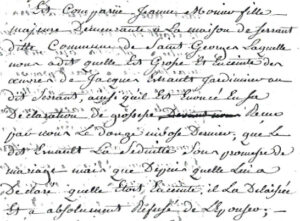 Est Comparüe Jeanne Monier fille
majeure Demeurante a La maison de serrant
ditte Commune de Saint George Laquelle
nous a dit quelle est Grosse et Enceinte des
œuvres de Jacques Ernault Jardinier au
dit Serrant ainsi quil est Enoncé En sa
Declaration de grossesse Devant nous Recue
par nous Le douze nivose Dernier, que Le
dit Ernault La Seduitte Sous promesse de
mariage mais que Depuis quelle Lui a
Declaré quelle Etoit Enceinte, il La Delaissée
Et a absolument Refusé de L'Epouser;